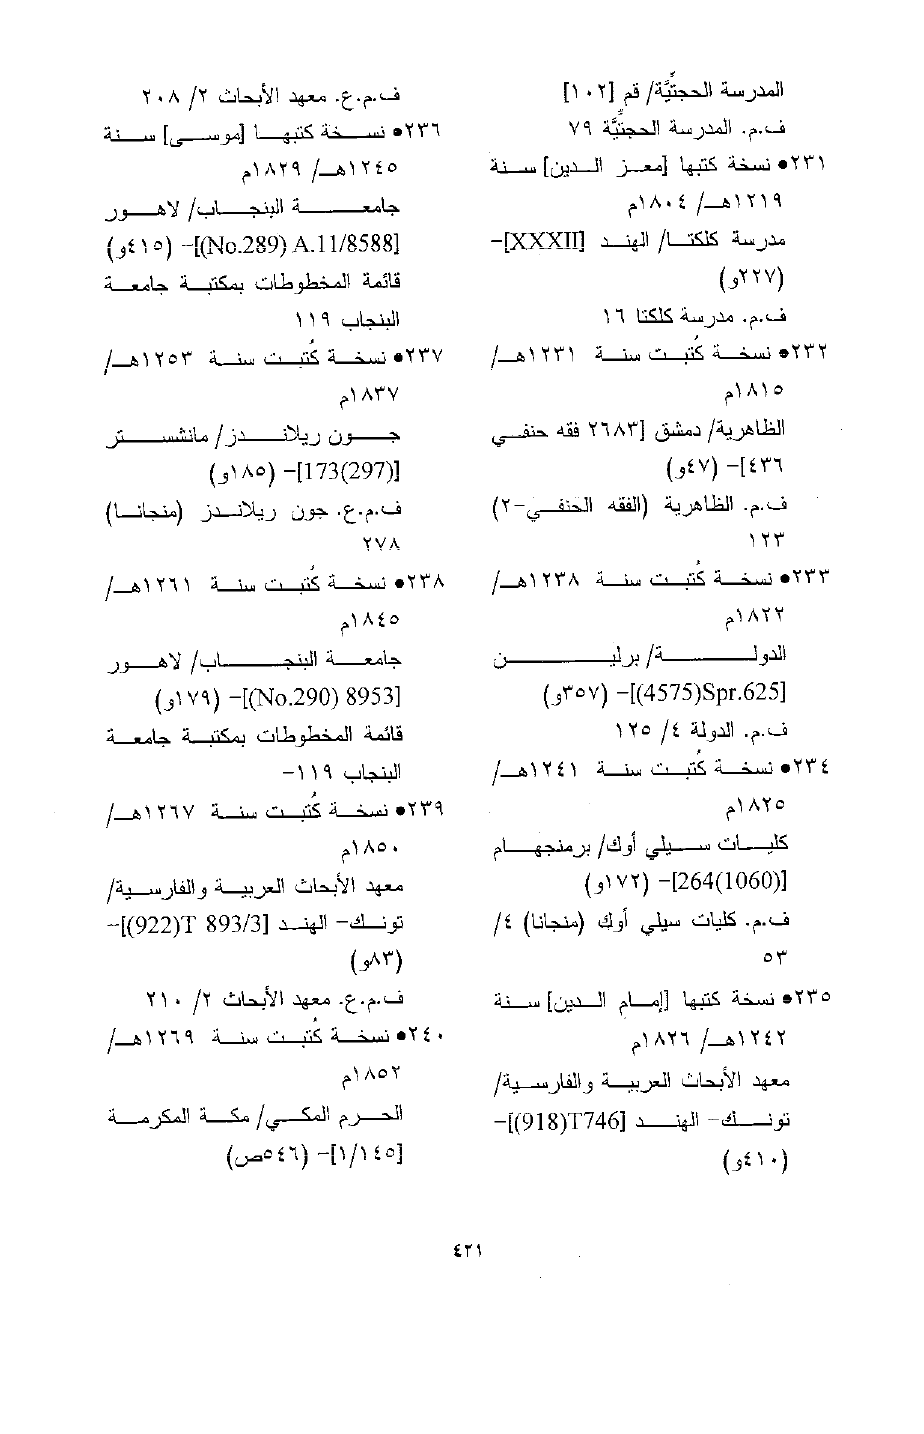 المدرسة الحجتيَّة/ قم [١٠٢]
ف.م. المدرسة الحجتيَّة ٧٩
٢٣١● نسخة كتبها [معز الدين] سنة
١٢١٩هـ/ ١٨٠٤م
مدرسة كلكتا/ الهند [XXXII]-
(٢٢٧و)
ف.م. مدرسة كلكتا ١٦
٢٣٢● نسخة كُتبت سنة ١٢٣١هـ/
١٨١٥م
الظاهرية/ دمشق [٢٦٨٣ فقه حنفي
٤٣٦]- (٤٧و)
ف.م. الظاهرية (الفقه الحنفي-٢)
١٢٣
٢٣٣● نسخة كُتبت سنة ١٢٣٨هـ/
١٨٢٢م
الدولة/ برلين
[Spr.625(4575)]- (٣٥٧و)
ف.م. الدولة ٤/ ١٢٥
٢٣٤● نسخة كُتبت سنة ١٢٤١هـ/
١٨٢٥م
كليات سيلي أوك/ برمنجهام
[264(1060)]- (١٧٢و)
ف.م. كليات سيلي أوك (منجانا) ٤/
٥٣
٢٣٥● نسخة كتبها [إمام الدين] سنة
١٢٤٢هـ/ ١٨٢٦م
معهد الأبحاث العربية والفارسية/
تونك- الهند [T746(918)]-
(٤١٠و)
ف.م.ع. معهد الأبحاث ٢/ ٢٠٨
٢٣٦● نسخة كتبها [موسى] سنة
١٢٤٥هـ/ ١٨٢٩م
جامعة البنجاب/ لاهور
[A.11/8588 (No.289)]- (٤١٥و)
قائمة المخطوطات بمكتبة جامعة
البنجاب ١١٩
٢٣٧● نسخة كُتبت سنة ١٢٥٣هـ/
١٨٣٧م
جون ريلاندز/ مانشستر
[173(297)]- (١٨٥و)
ف.م.ع. جون ريلاندز (منجانا)
٢٧٨
٢٣٨● نسخة كُتبت سنة ١٢٦١هـ/
١٨٤٥م
جامعة البنجاب/ لاهور
[8953 (No.290)]- (١٧٩و)
قائمة المخطوطات بمكتبة جامعة
البنجاب ١١٩-
٢٣٩● نسخة كُتبت سنة ١٢٦٧هـ/
١٨٥٠م
معهد الأبحاث العربية والفارسية/
تونك- الهند [T 893/3(922)]-
(٨٣و)
ف.م.ع. معهد الأبحاث ٢/ ٢١٠
٢٤٠● نسخة كُتبت سنة ١٢٦٩هـ/
١٨٥٢م
الحرم المكي/ مكة المكرمة
[١/١٤٥]- (٥٤٦ص)
٤٢١